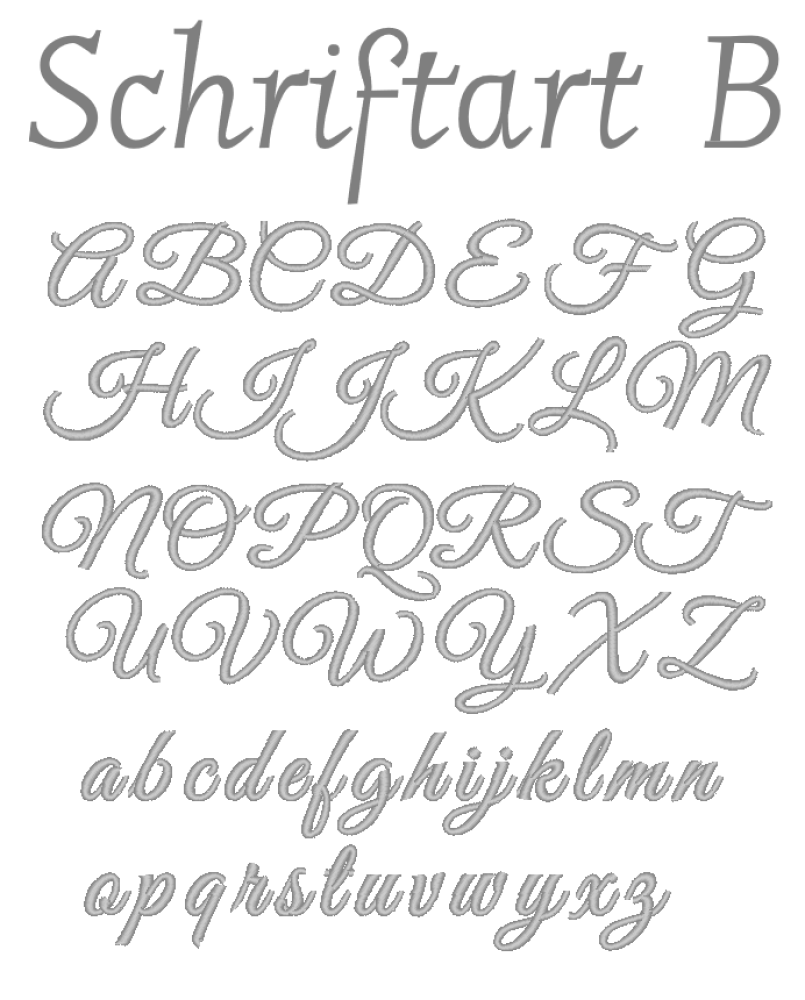 Schriftart B
ABCDEFG
HIJKLM
NOPQRST
UVWYXZ
abcdefghijklmn
opqrstuvwyxz